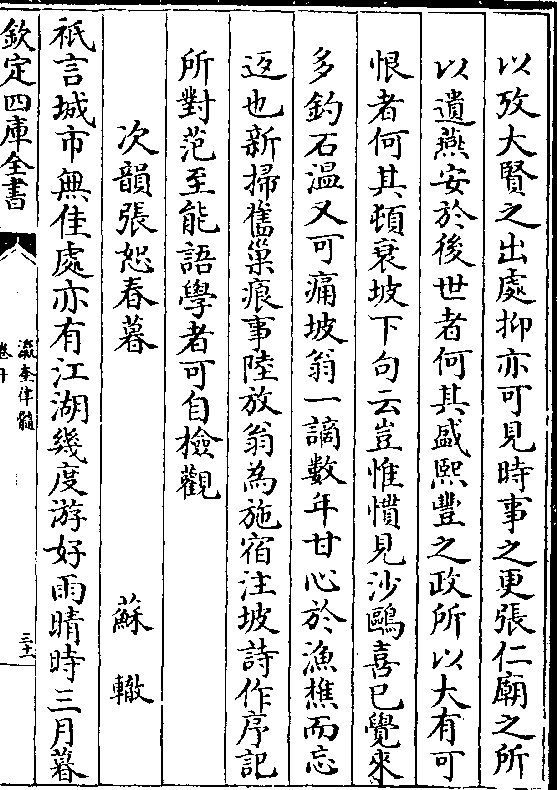 以攷大賢之出處抑亦可見時事之更張仁廟之所
以遺燕安於後世者何其盛熙豐之政所以大有可
恨者何其頓衰坡下句云豈惟慣見沙鷗喜已覺來
多釣石溫又可痛坡翁一謫數年甘心於漁樵而忘
返也新掃舊巢痕事陸放翁為施宿注坡詩作序記
所對范至能語學者可自檢觀
次韻張恕春暮
蘇轍
祇言城市無佳處亦有江湖幾度游好雨晴時三月暮
欽定四庫全書
瀛奎律髓
三十一